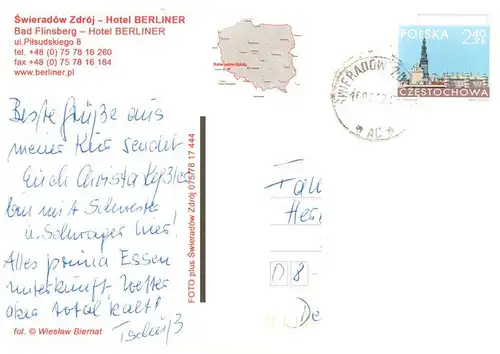 Świeradów Zdrój – Hotel BERLINER
Bad Flinsberg – Hotel BERLINER
ul,Piłsudskiego 8
tel, +48 (0) 75 78 16 260
fax +48 (0) 75 78 16 184
www.berliner.pl
POLSKA
2,40 ZŁ
CZĘSTOCHOWA
ŚWIERADÓW
Beste Grüße aus
meiner Kur sendet
Euch Christa
bin mit Schwester
u. Schwager hier!
Alles prima Essen
Unterkunft Wetter
aber total kalt!
Tschüß
fot. © Wiesław Biernat
FOTO plus Świeradów Zdrój 075/78 17 444
D 8
De